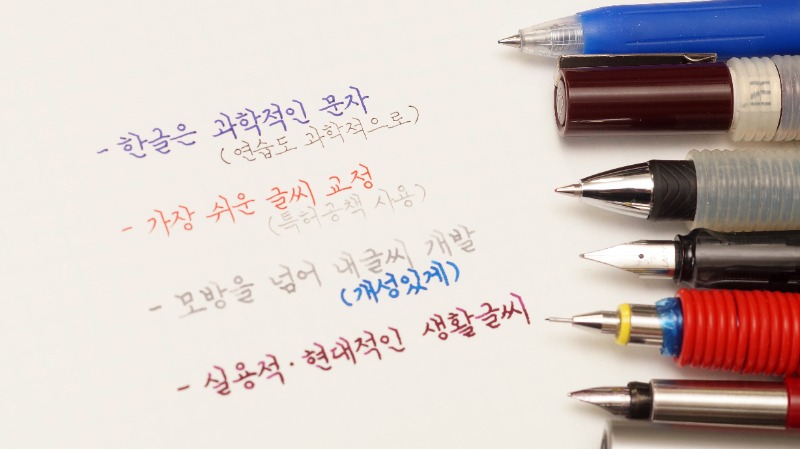 - 한글은 과학적인 문자
(연습도 과학적으로)
- 가장 쉬운 글씨 교정
(특허공책 사용)
- 모방을 넘어 내글씨 개발
(개성있게)
- 실용적·현대적인 생활글씨